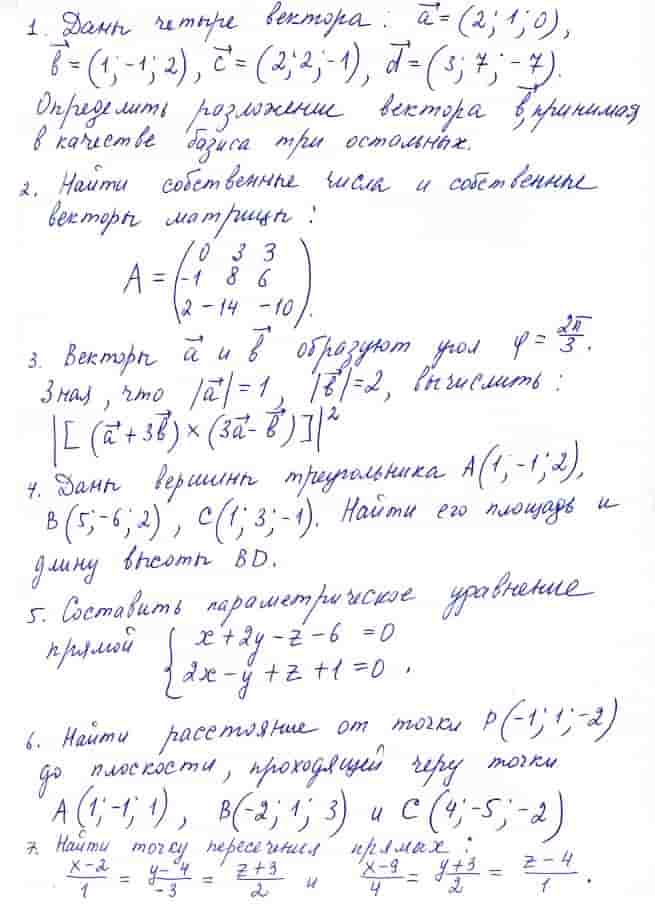 1. Даны четыре вектора: a⃗ = (2; 1; 0),
b⃗ = (1; -1; 2), c⃗ = (2; 2; -1), d⃗ = (3; 7; -7).
Определить разложение вектора b⃗, принимая
в качестве базиса три остальных.
2. Найти собственные числа и собственные
векторы матрицы:
A = (0 3 3
-1 8 6
2 -14 -10).
3. Векторы a⃗ и b⃗ образуют угол φ = 2π/3.
Зная, что |a⃗| = 1, |b⃗| = 2, вычислить:
|[(a⃗ + 3b⃗) × (3a⃗ - b⃗)]|²
4. Даны вершины треугольника A(1; -1; 2),
B(5; -6; 2), C(1; 3; -1). Найти его площадь и
длину высоты BD.
5. Составить параметрическое уравнение
прямой { x + 2y - z - 6 = 0
2x - y + z + 1 = 0.
6. Найти расстояние от точки P(-1; 1; -2)
до плоскости, проходящей черу точки
A(1; -1; 1), B(-2; 1; 3) и C(4; -5; -2)
7. Найти точку пересечения прямых:
x-2/1 = y-4/-3 = z+3/2 и x-9/4 = y+3/2 = z-4/1.